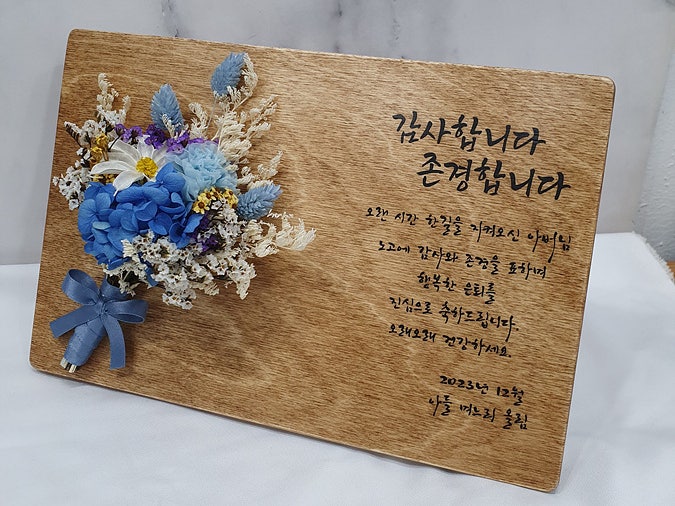 감사합니다
존경합니다
오랜 시간 한길을 지켜오신 아버님
노고에 감사와 존경을 표하며
행복한 은퇴를
진심으로 축하드립니다.
오래오래 건강하세요.
2023년 12월
아들 며느리 올림